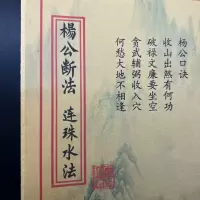 楊公断法 连珠水法
杨公口诀
收山出煞有何功
破禄文廉要坐空
贪武辅弼收入穴
何愁大地不相逢